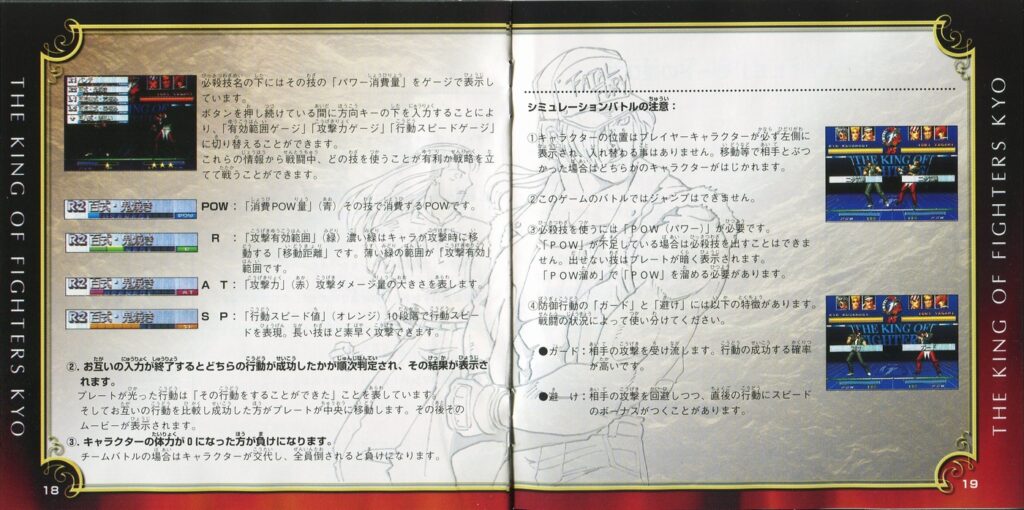 THE KING OF FIGHTERS KYO
必殺技名の下にはその技の「パワー消費量」をゲージで表示し
ています。
ボタンを押し続けている間に方向キーの下を入力することによ
り、「有効範囲ゲージ」「攻撃力ゲージ」「行動スピードゲージ」
に切り替えることができます。
これらの情報から戦闘中、どの技を使うことが有利か戦略を立
てて戦うことができます。
R2 百式・鬼焼き
POW：「消費POW量」（青）その技で消費するPOWです。
R2 百式・鬼焼き
R：「攻撃有効範囲」（緑）濃い緑はキャラが攻撃時に移
動する「移動距離」です。薄い緑の範囲が「攻撃有効」
範囲です。
R2 百式・鬼焼き
AT：「攻撃力」（赤）攻撃ダメージ量の大きさを表します。
R2 百式・鬼焼き
SP：「行動スピード値」（オレンジ）10段階で行動スピー
ドを表現。長い技ほど素早く攻撃できます。
②. お互いの入力が終了するとどちらの行動が成功したかが順次判定され、その結果が表示さ
れます。
プレートが光った行動は「その行動をすることができた」ことを表しています。
そしてお互いの行動を比較し成功した方がプレートが中央に移動します。その後その
ムービーが表示されます。
③. キャラクターの体力が0になった方が負けになります。
チームバトルの場合はキャラクターが交代し、全員倒されると負けになります。
18
シミュレーションバトルの注意：
①キャラクターの位置はプレイヤーキャラクターが必ず左側に
表示され、入れ替わる事はありません。移動等で相手とぶつ
かった場合はどちらかのキャラクターがはじかれます。
②このゲームのバトルではジャンプはできません。
③必殺技を使うには「POW（パワー）」が必要です。
「POW」が不足している場合は必殺技を出すことはできま
せん。出せない技はプレートが暗く表示されます。
「POW溜め」で「POW」を溜める必要があります。
④防御行動の「ガード」と「避け」には以下の特徴があります。
戦闘の状況によって使い分けてください。
●ガード：相手の攻撃を受け流します。行動の成功する確率
が高いです。
●避　け：相手の攻撃を回避しつつ、直後の行動にスピード
のボーナスがつくことがあります。
THE KING OF FIGHTERS
THE KING OF FIGHTERS
THE KING OF FIGHTERS KYO
19